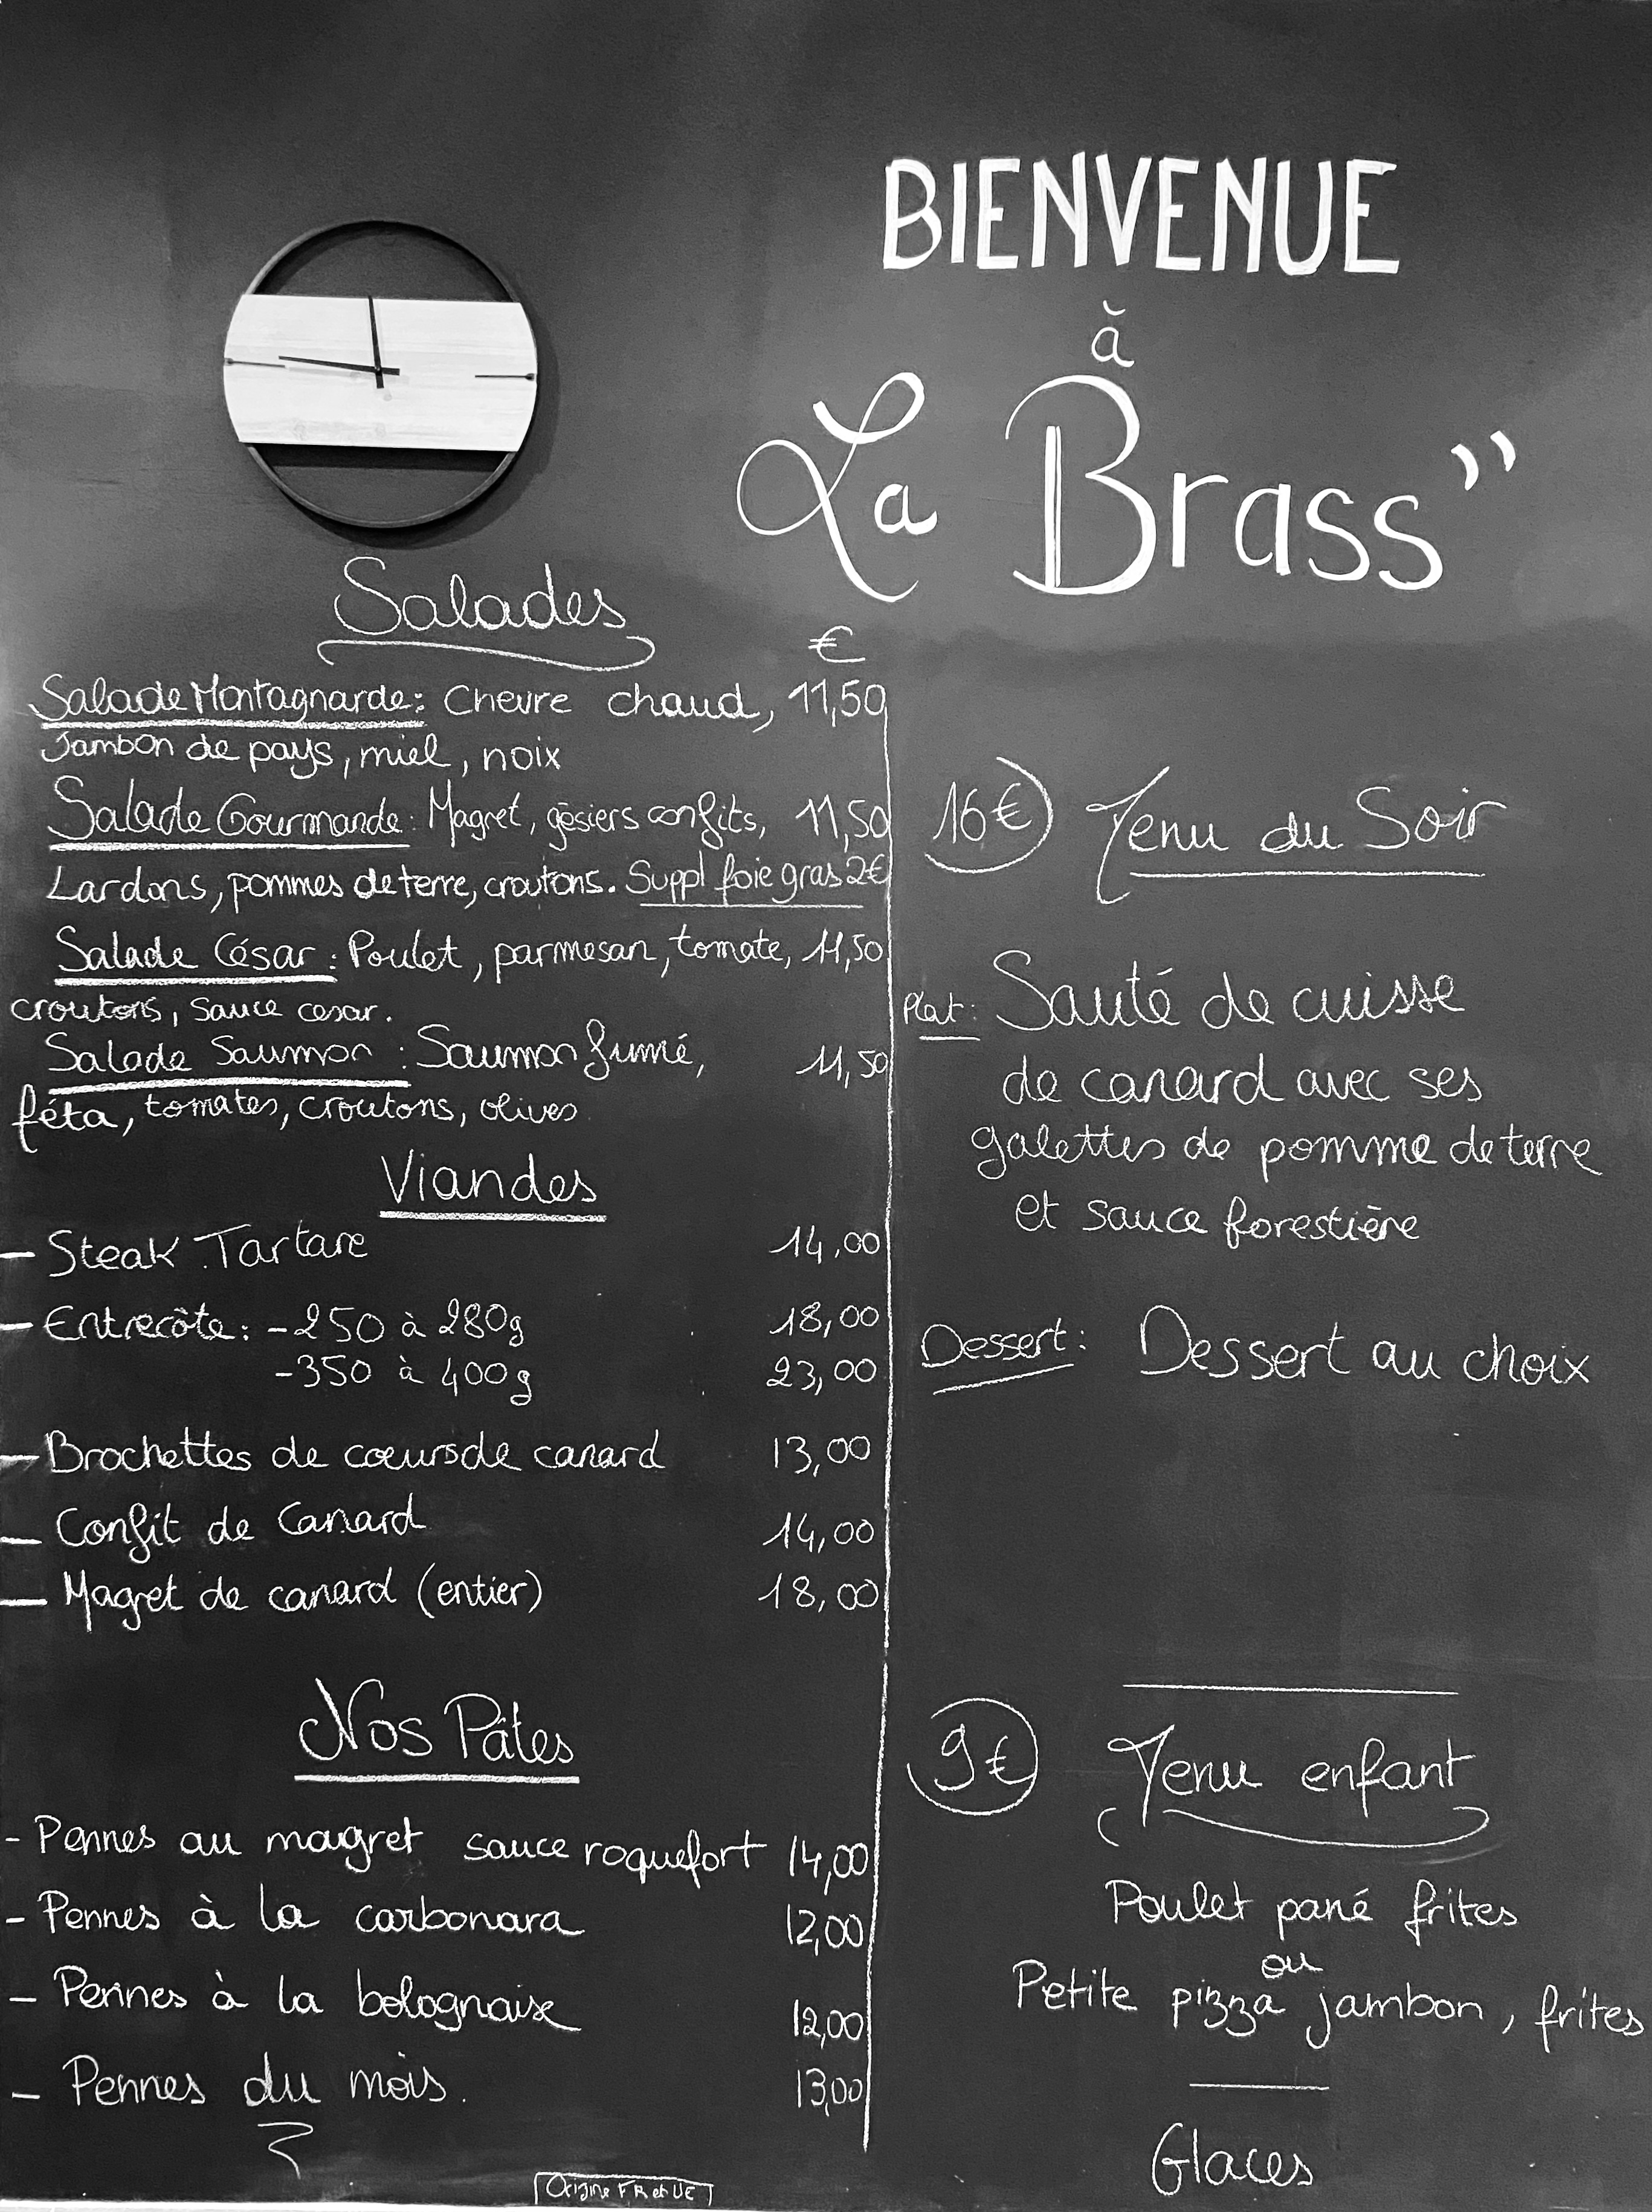 BIENVENUE
à
La Brass"
Salades
€
Salade Montagnarde: Chevre chaud, 11,50
Jambon de pays, miel, noix
Salade Gourmande: Magret, gésiers confits, 11,50
Lardons, pommes de terre, croutons. Suppl foie gras 2€
Salade César: Poulet, parmesan, tomate, 11,50
croutons, sauce cesar.
Salade Saumon: Saumon fumé, 11,50
féta, tomates, croutons, olives
Viandes
- Steak Tartare 14,00
- Entrecôte: -250 à 280g 18,00
-350 à 400g 23,00
- Brochettes de coeurs de canard 13,00
- Confit de Canard 14,00
- Magret de canard (entier) 18,00
Nos Pâtes
- Pennes au magret sauce roquefort 14,00
- Pennes à la carbonara 12,00
- Pennes à la bolognaise 12,00
- Pennes du mois. 13,00
Origine FR et UE
16€ Menu du Soir
Plat: Sauté de cuisse
de canard avec ses
galettes de pomme de terre
et sauce forestière
Dessert: Dessert au choix
9€ Menu enfant
Poulet pané frites
ou
Petite pizza jambon, frites
Glaces